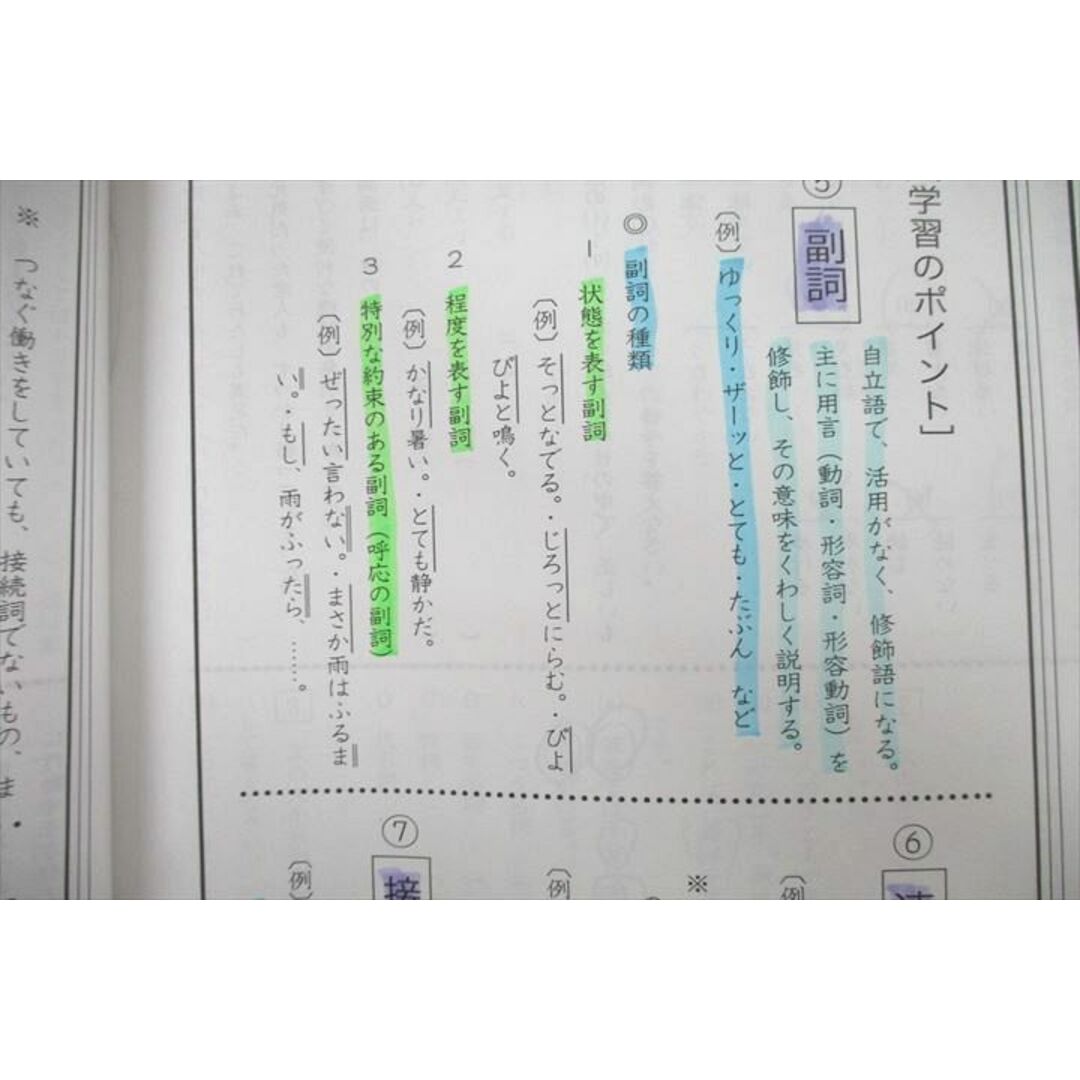 学習のポイント］
⑤ 副詞
自立語で、活用がなく、修飾語になる。
主に用言（動詞・形容詞・形容動詞）を
修飾し、その意味をくわしく説明する。
（例）ゆっくり・ザーッと・とても・たぶん など
◎ 副詞の種類
1 状態を表す副詞
（例）そっとなでる。・じろっとにらむ。・ぴよ
ぴよと鳴く。
2 程度を表す副詞
（例）かなり暑い。・とても静かだ。
3 特別な約束のある副詞（呼応の副詞）
（例）ぜったい言わない。・まさか雨はふるま
い。・もし、雨がふったら、……。
⑥
（例
※
（例
⑦ 接
（例）
※ つなぐ働きをしていても、接続詞でないもの、ま・